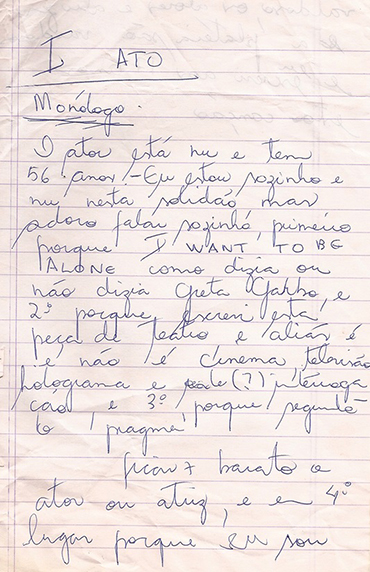 I ATO
Monólogo.
I ator está nu e tem
56 anos! - Eu estou sozinho e
nu nesta solidão mas
adoro falar sozinho, primeiro
porque I WANT TO BE
ALONE como dizia ou
não dizia Greta Garbo, e
2º porque escrevi esta
peça de teatro e aliás é
e não é cinema televisão
holograma e (?) interroga
ção e 3º porque segundo
o pragma
ficar + barato o
ator ou atriz, e em 4º
lugar porque eu sou